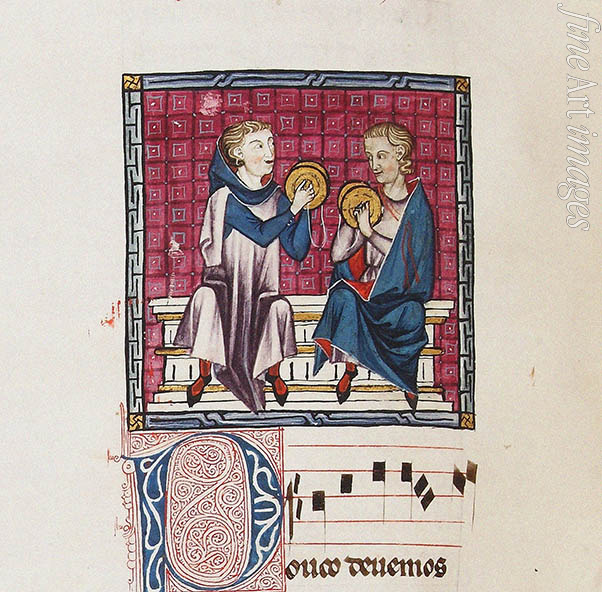 fineArtimages
Pouco deuemos